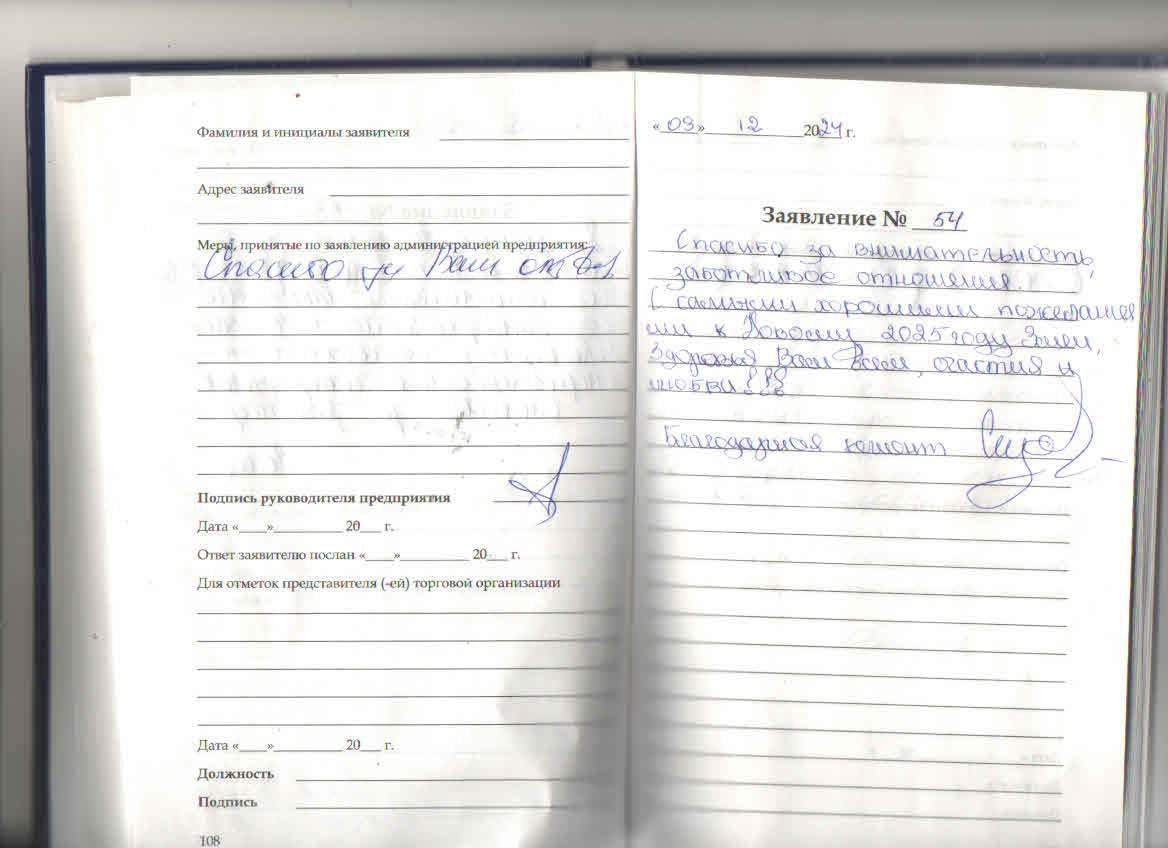 Фамилия и инициалы заявителя
Адрес заявителя
Меры, принятые по заявлению администрацией предприятия:
Спасибо за Ваш отзыв
Подпись руководителя предприятия
Дата «___»__________ 20___ г.
Ответ заявителю послан «____»__________ 20___ г.
Для отметок представителя (-ей) торговой организации
Дата «____»__________ 20___ г.
Должность
Подпись
108
«09» 12 2024 г.
Заявление № 54
Спасибо за внимательность,
заботливое отношения.
С самыми хорошими пожелания
ми к Новому 2025 году Змеи,
Здоровья Вам всем, счастия и
любви!!!
Благодарная клиент